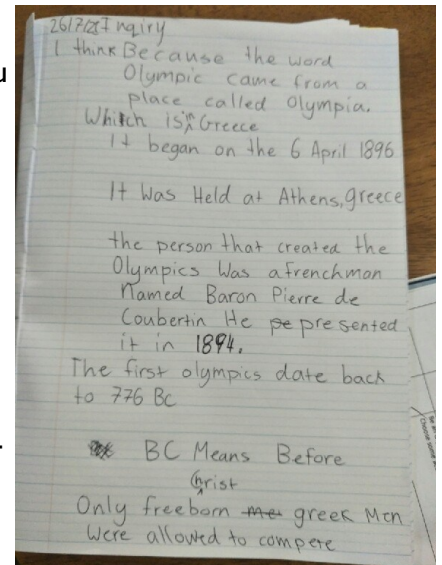 26/7/28 Inqiry
I think Because the word
Olympic came from a
place called Olympia.
Which is in Greece
It began on the 6 April 1896
It Was Held at Athens, greece
the person that created the
Olympics Was a frenchman
named Baron Pierre de
Coubertin He presented
it in 1894.
The first olympics date back
to 776 Bc
BC Means Before
Christ
Only freeborn greek Men
Were allowed to compete